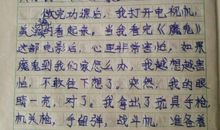 做完功课后，我打开电视机，
看起来，当我看完《魔鬼》
这部电影后，心里非常害怕，如果
魔鬼到我们家怎么办，我越想越害
怕，不敢往下想了，突然，我的眼
睛一亮，对了，我拿出了玩具手枪
机关枪，手留弹，战斗机，准备着